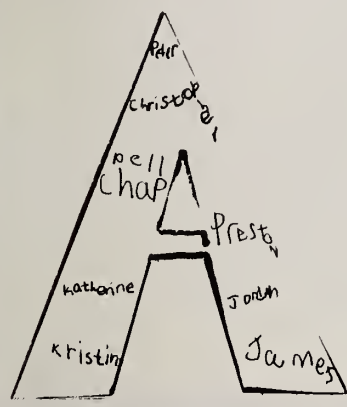 Christopher
Dell
Chap
Preston
Katherine
Jordan
Kristin
James